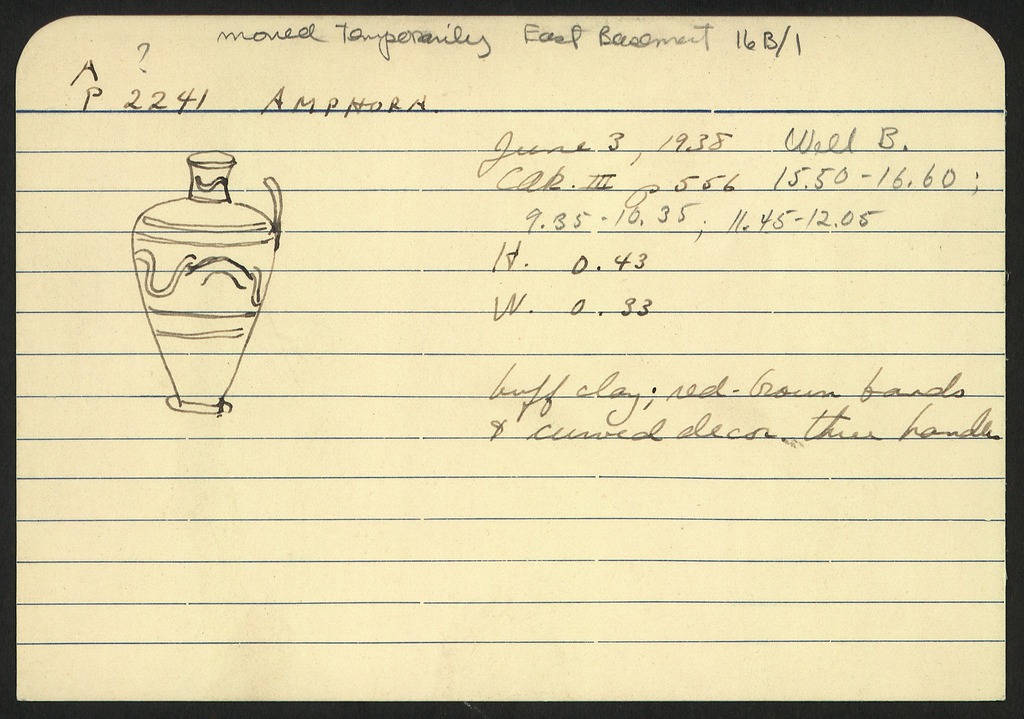 moved temporarily East Basement 16B/1
A ?
P 2241 AMPHORA.
June 3, 1938 Well B.
Cak. III p 556 15.50-16.60;
9.35-10.35; 11.45-12.05
H. 0.43
W. 0.33
buff clay; red-brown bands
& curved decor. three handles